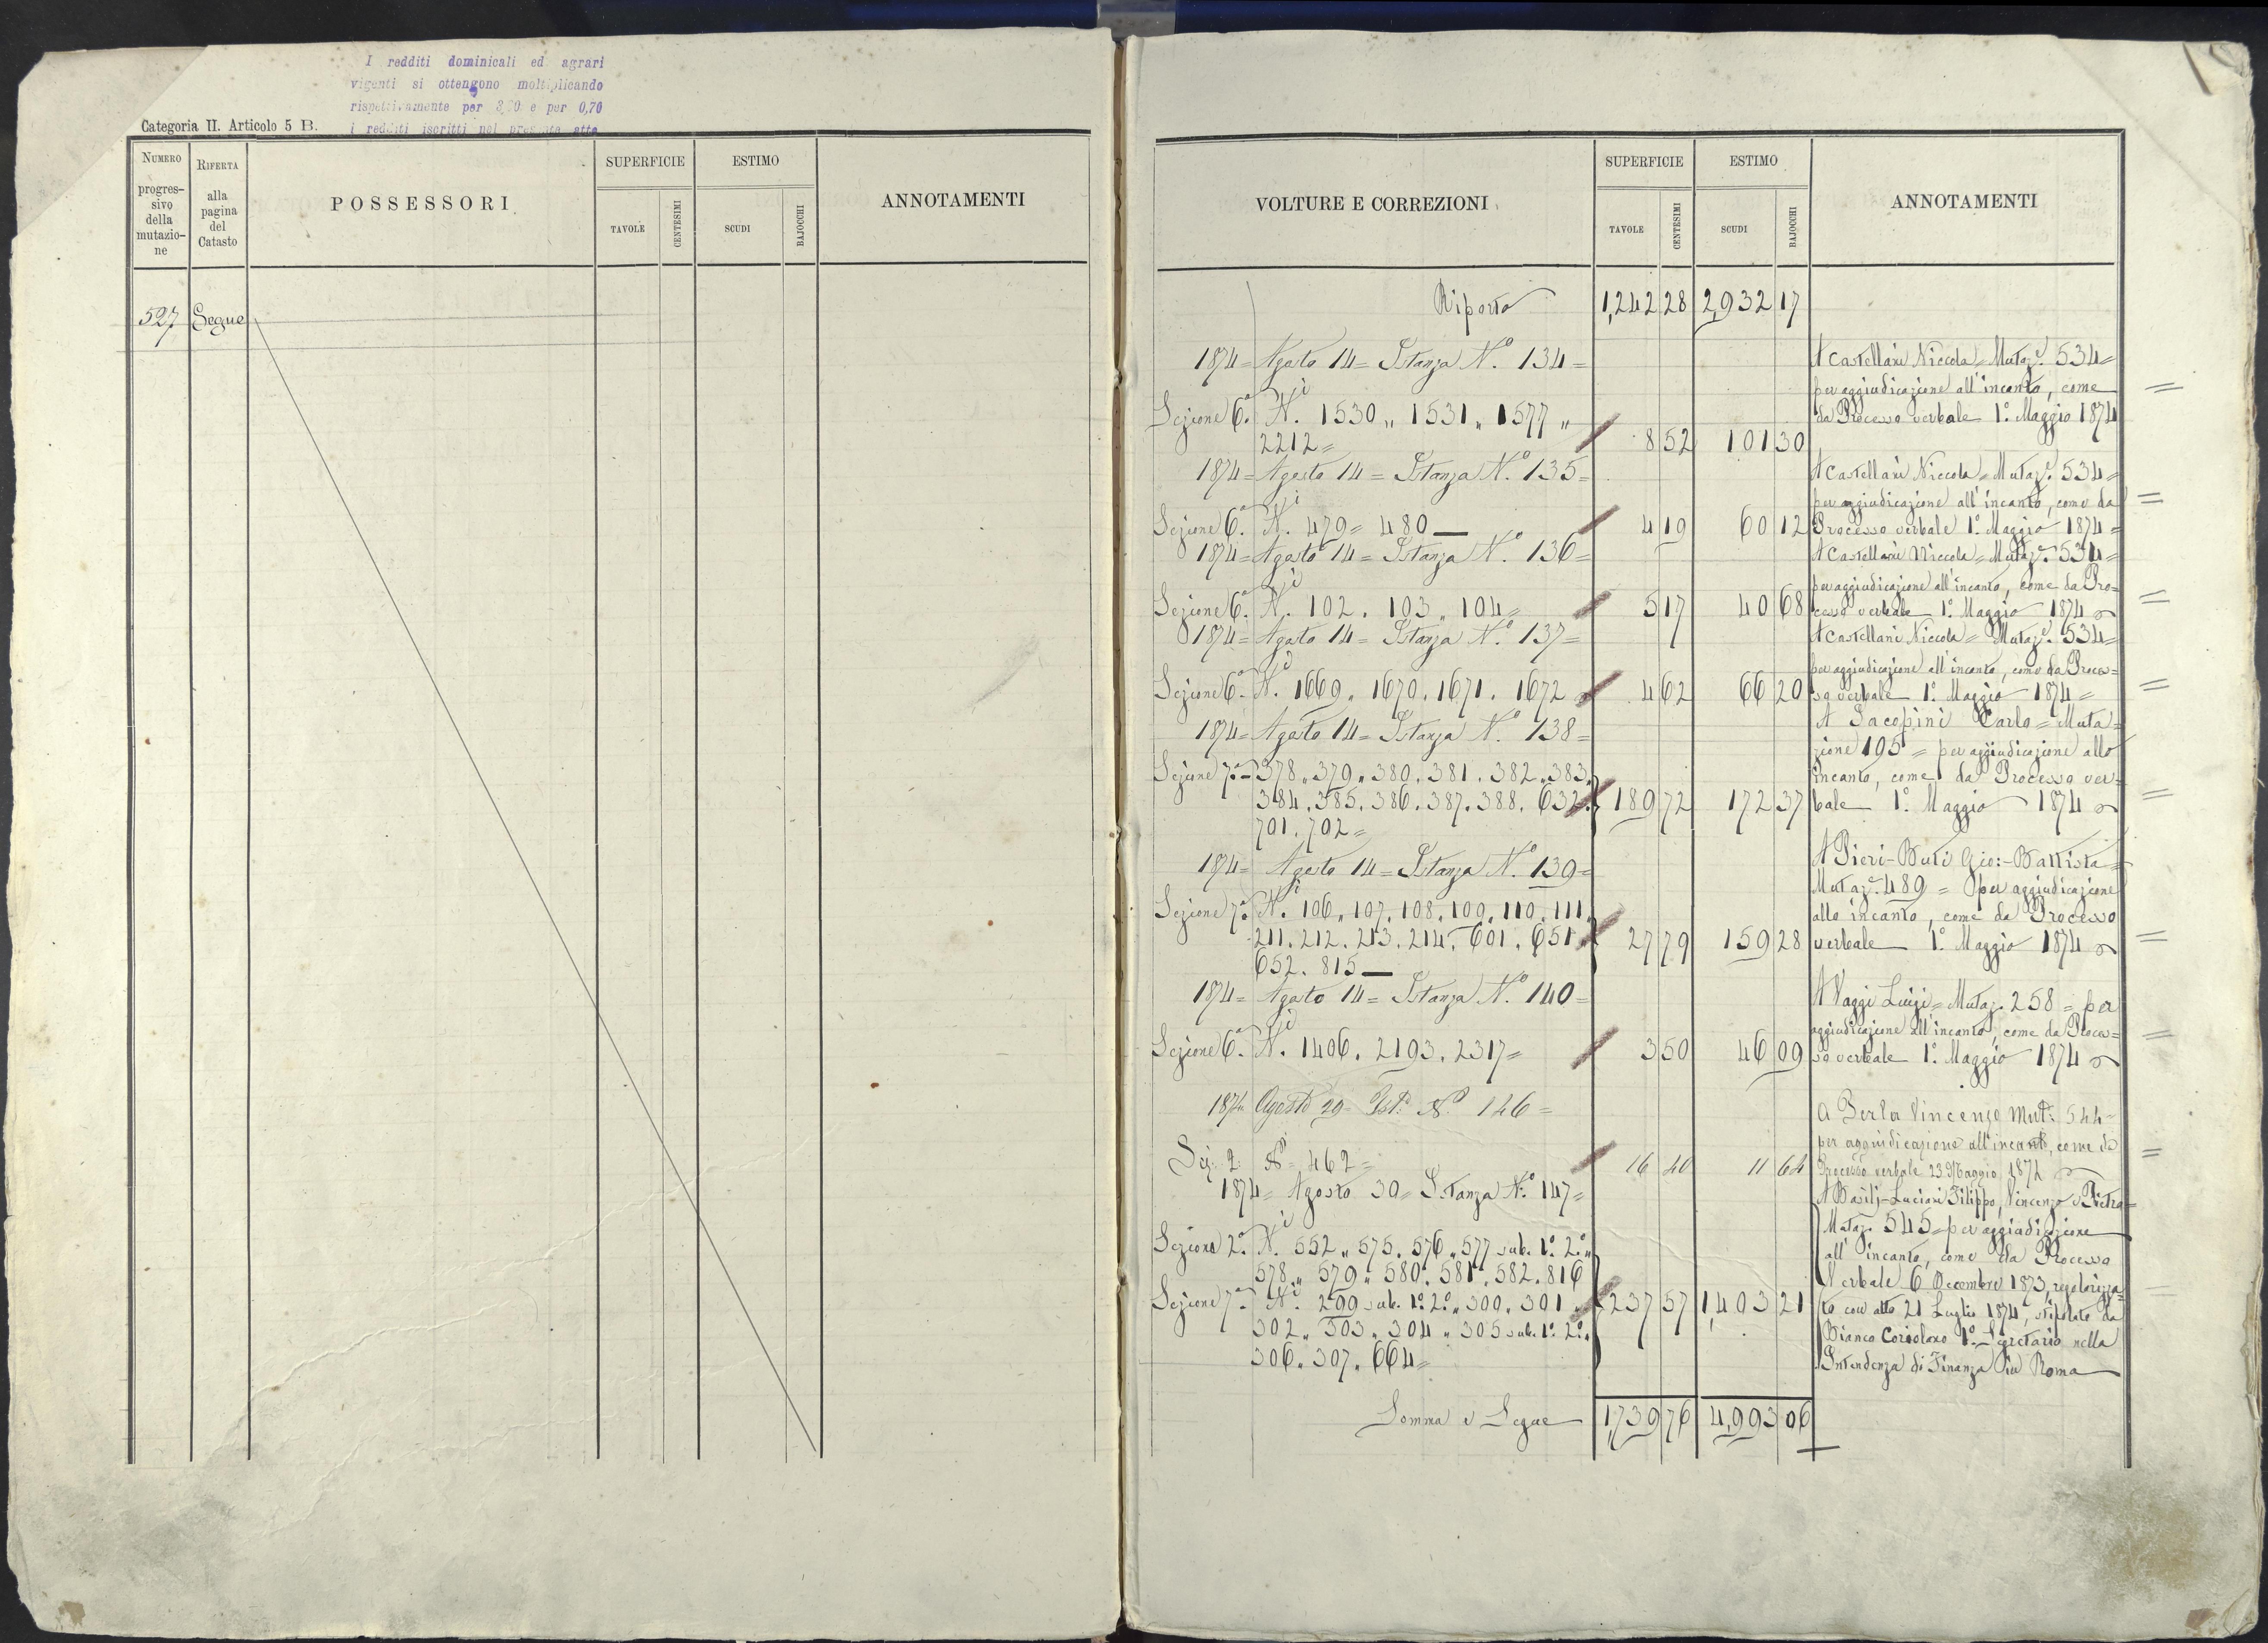 I redditi dominicali ed agrari
vigenti si ottengono moltiplicando
rispettivamente per e per 0,70
i redditi iscritti nel presente atto
Categoria II. Articolo 5 B.
NUMERO
progres-
sivo
della
mutazio-
ne
RIFERTA
alla
pagina
del
Catasto
POSSESSORI
SUPERFICIE
TAVOLE
CENTESIMI
ESTIMO
SCUDI
BAJOCCHI
ANNOTAMENTI
527 Segue
VOLTURE E CORREZIONI
SUPERFICIE
TAVOLE
CENTESIMI
ESTIMO
SCUDI
BAJOCCHI
ANNOTAMENTI
Riporto 1,242 28 2,932 17
1874 = Agosto 14 = Istanza N.° 134 =
A Castellani Niccola = Mutaz.e 534 =
per aggiudicazione all'incanto, come
da Processo verbale 1.° Maggio 1874
Sezione 6.a N.i 1530 „ 1531 „ 1577 „
2212 = 8 52 101 30
1874 = Agosto 14 = Istanza N.° 135 =
A Castellani Niccola = Mutaz.e 534 =
per aggiudicazione all'incanto, come da
Processo verbale 1.° Maggio 1874 =
Sezione 6.a N.i 479 = 480 — 4 19 60 12
1874 = Agosto 14 = Istanza N.° 136 =
A Castellani Niccola = Mutaz.e 534 =
per aggiudicazione all'incanto, come da Pro=
cesso verbale 1.° Maggio 1874
Sezione 6.a N.i 102. 103. 104 = 5 17 40 68
1874 = Agosto 14 = Istanza N.° 137 =
A Castellani Niccola = Mutaz.e 534 =
per aggiudicazione all'incanto, come da Proces=
so verbale 1.° Maggio 1874 =
Sezione 6.a N.i 1669. 1670. 1671. 1672 4 62 66 20
1874 = Agosto 14 = Istanza N.° 138 =
A Jacopini Carlo = Muta=
zione 195 = per aggiudicazione allo
incanto, come da Processo ver=
bale 1.° Maggio 1874
Sezione 7.a = 378. 379. 380. 381. 382. 383.
384. 385. 386. 387. 388. 632. 189 72 172 37
701. 702 =
1874 = Agosto 14 = Istanza N.° 139 =
A Pieri-Buti Gio:-Battista =
Mutaz.e 489 = per aggiudicazione
allo incanto, come da Processo
verbale 1.° Maggio 1874
Sezione 7.a N.i 106. 107. 108. 109. 110. 111.
211. 212. 213. 214. 601. 651. 27 79 159 28
652. 815 —
1874 = Agosto 14 = Istanza N.° 140 =
A Vaggi Luigi = Mutaz. 258 = per
aggiudicazione all'incanto, come da Proces=
so verbale 1.° Maggio 1874
Sezione 6.a N.i 1406. 2193. 2317 = 3 50 46 09
1874 Agosto 29 = Ist.a N.° 146 =
A Berla Vincenzo Mut.e 544 =
per aggiudicazione all'incanto, come da
Processo verbale 23 Maggio 1874
Sez. 2 N.° 462 = 16 40 11 64
1874 = Agosto 30 = Istanza N.° 147 =
A Basilj-Luciani Filippo, Vincenzo e Pietro =
Mutaz. 545 = per aggiudicazione
all'incanto, come da Processo
Verbale 6 Decembre 1873, regolarizza=
to con atto 21 Luglio 1874, stipolato da
Bianco Coriolano 1.° Segretario nella
Intendenza di Finanza in Roma
Sezione 2.a N.i 552 „ 575. 576 „ 577 sub. 1.° 2.° „
578 „ 579 „ 580. 581. 582. 816
Sezione 7.a N.i 299 sub. 1.° 2.° „ 300. 301 „ 237 57 1,403 21
302 „ 303 „ 304 „ 305 sub. 1.° 2.° „
306. 307. 664 =
Somma e Segue 1,739 76 4,993 06